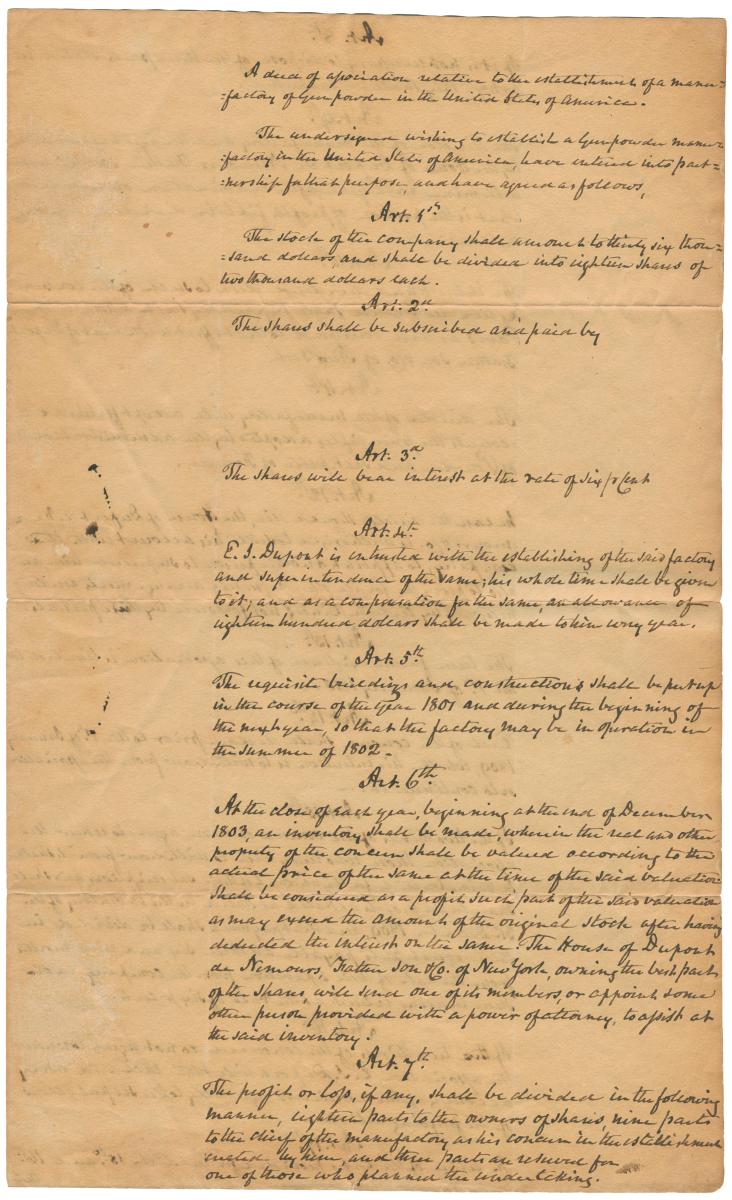 A deed of association relative to the establishment of a manu=
=factory of Gun powder in the United States of America.
The undersigned wishing to establish a Gunpowder manu=
=factory in the United States of America, have entered into part=
=nership for that purpose, and have agreed as follows,
Art. 1st
The stock of the company shall amount to thirty six thou=
=sand dollars, and shall be divided into eighteen shares of
two thousand dollars each.
Art. 2d
The shares shall be subscribed and paid by
Art. 3d
The shares will bear interest at the rate of six p Cent
Art. 4th
E. I. Dupont is intrusted with the establishing of the said factory
and superintendence of the same; his whole time shall be given
to it; and as a compensation for the same, an allowance of
eighteen hundred dollars shall be made to him every year.
Art. 5th
The requisite buildings and constructions shall be put up
in the course of the year 1801 and during the beginning of
the next year, so that the factory may be in operation in
the summer of 1802.
Art. 6th
At the close of each year, beginning at the end of December
1803, an inventory shall be made, wherein the real and other
property of the concern shall be valued according to the
actual price of the same at the time of the said valuation
shall be considered as a profit such part of the said valuation
as may exceed the amount of the original stock after having
deducted the interest on the same. The House of Dupont
de Nemours, Father Son & Co. of New York, owning the best part
of the shares, will send one of its members, or appoint some
other person provided with a power of attorney, to assist at
the said inventory.
Art. 7th
The profit or loss, if any, shall be divided in the following
manner, eighteen parts to the owners of shares, nine parts
to the chief of the manufactory as his concern in the establishment
created by him, and three parts are reserved for
one of those who planned the undertaking.